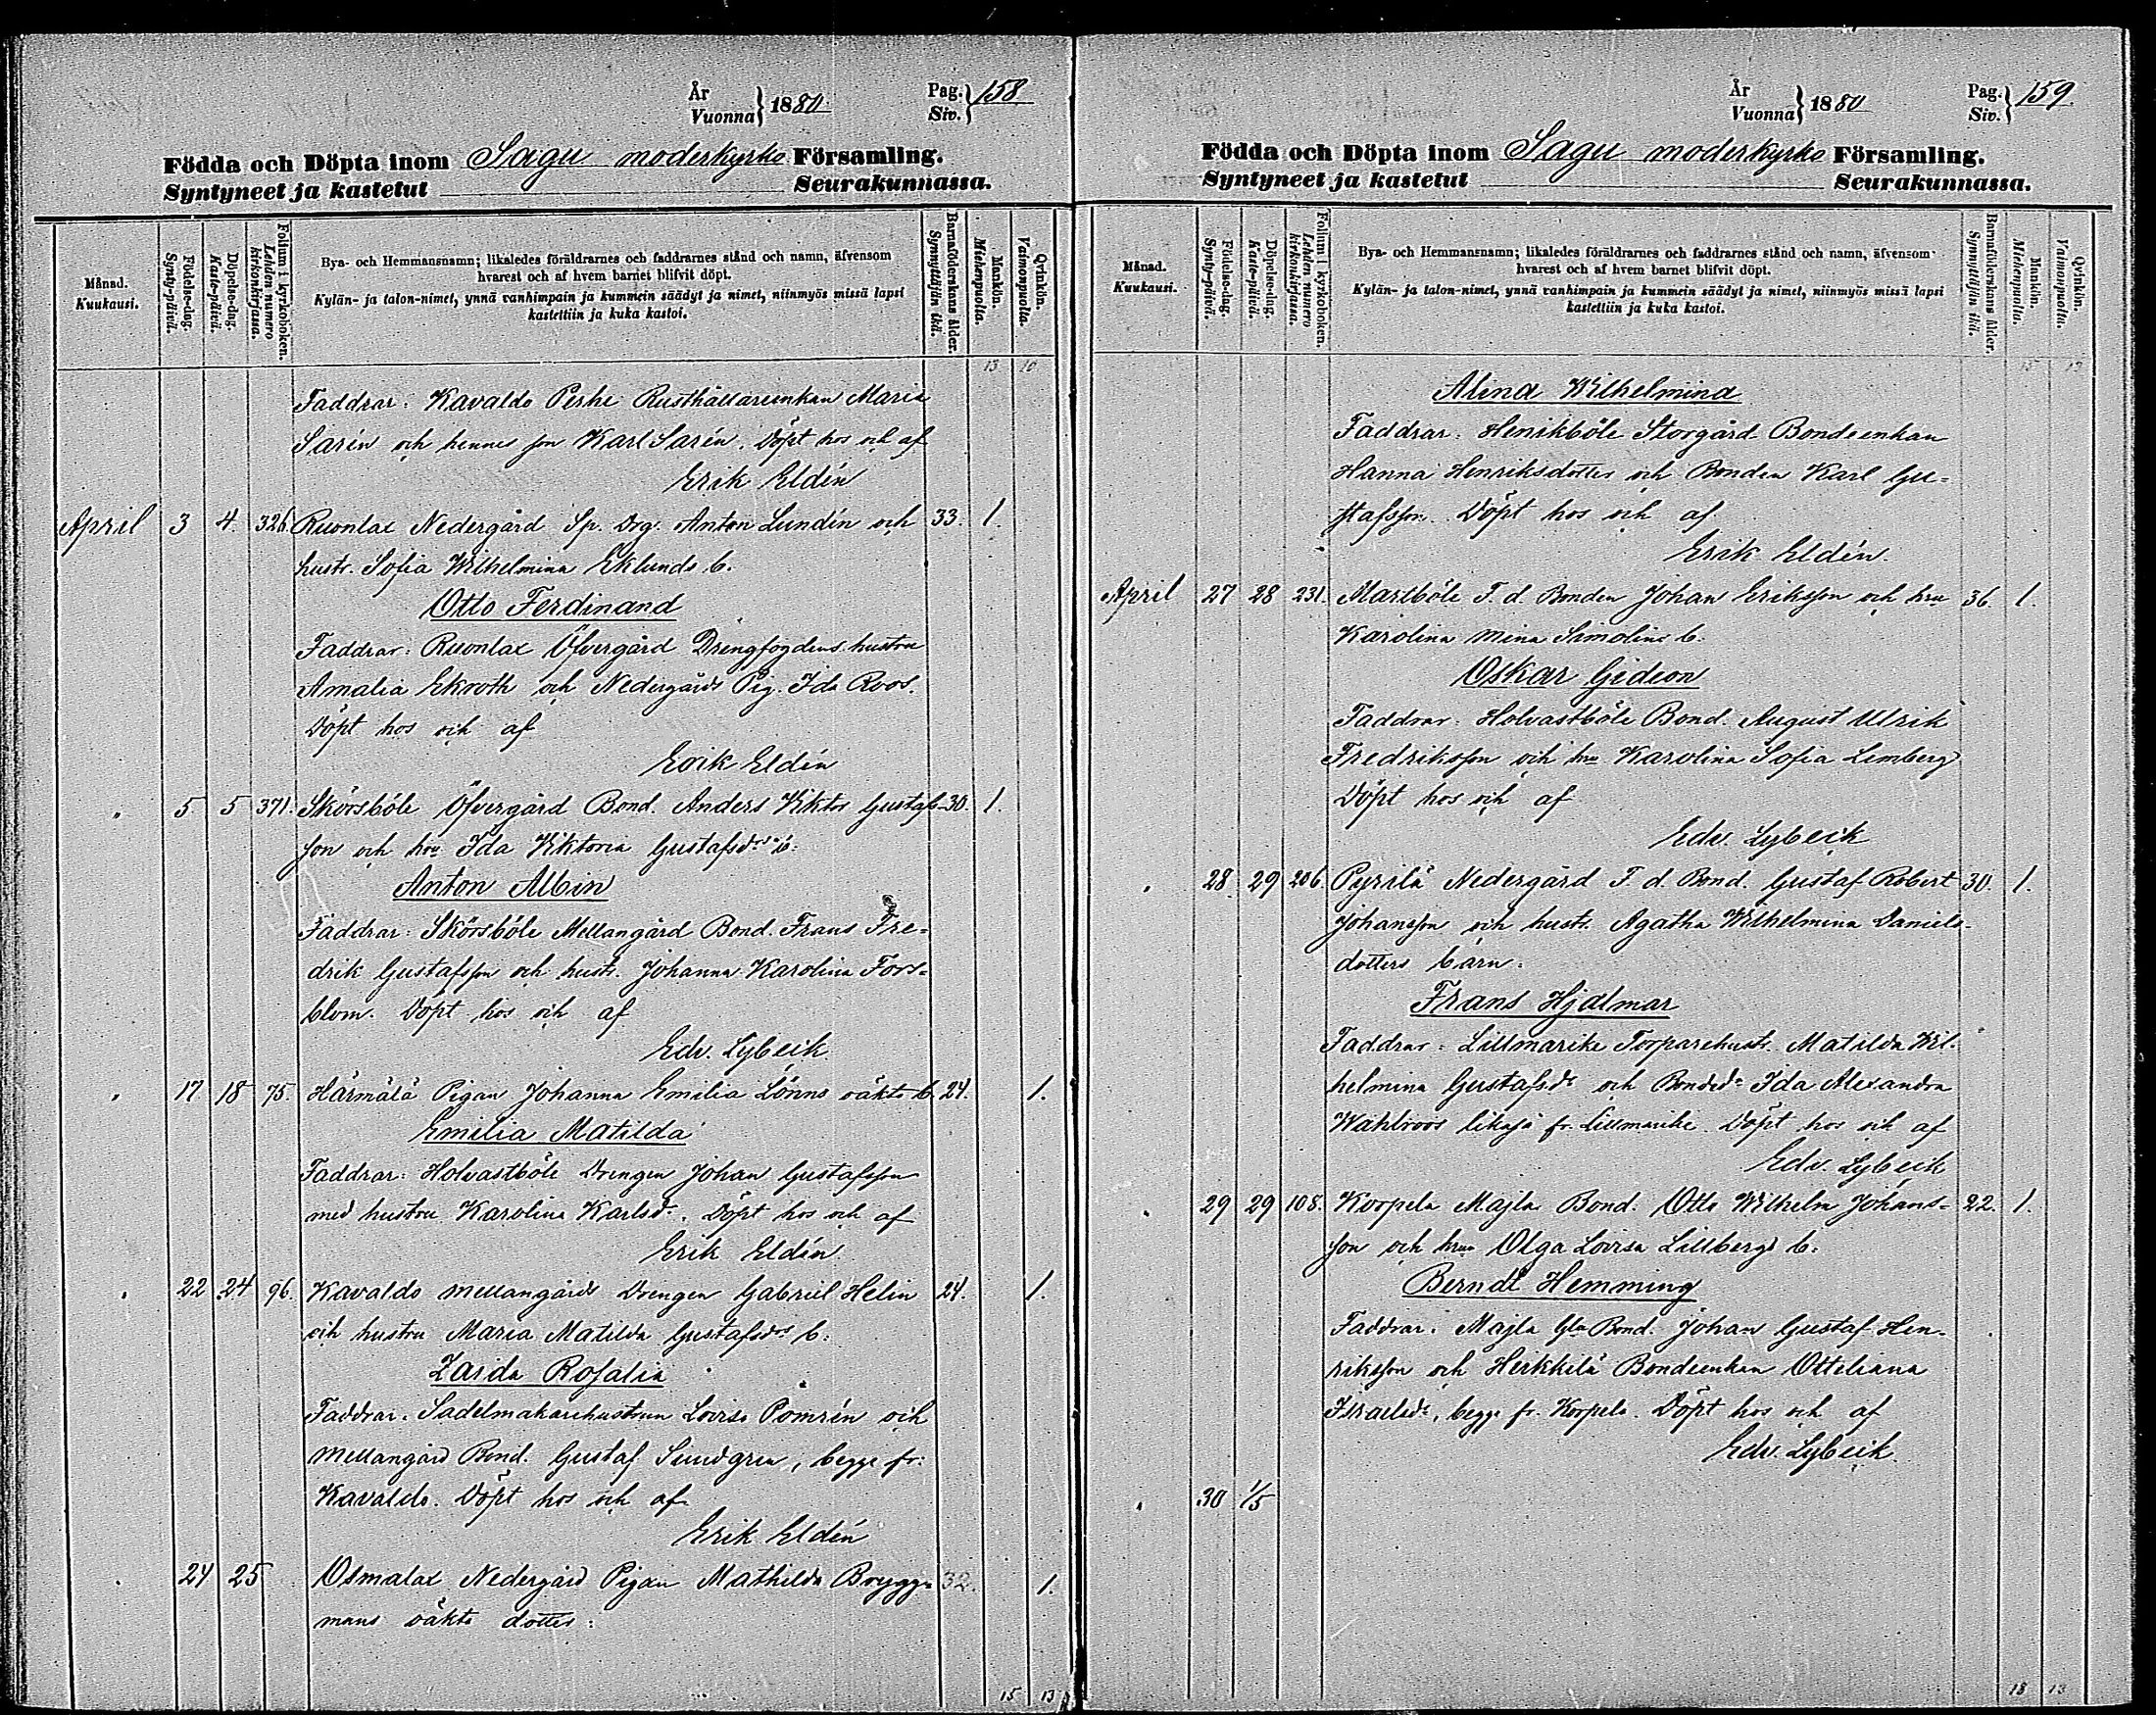 År
Vuonna } 1880
Pag.
Siv. } 158
Födda och Döpta inom Sagu moderkyrko Församling.
Syntyneet ja kastetut Seurakunnassa.
Månad.
Kuukausi.
Födelse-dag.
Synty-päivä.
Döpelse-dag.
Kaste-päivä.
Folium i kyrkoboken.
Lehden numero
kirkonkirjassa.
Bya- och Hemmansnamn; likaledes föräldrarnes och faddrarnes stånd och namn, äfvensom
hvarest och af hvem barnet blifvit döpt.
Kylän- ja talon-nimet, ynnä vanhimpain ja kummein säädyt ja nimet, niinmyös missä lapsi
kastettiin ja kuka kastoi.
Barnaföderskans ålder.
Synnyttäjän ikä.
Mankön.
Miehenpuolia.
Qvinkön.
Vaimonpuolia.
13 10
Faddrar: Kavaldo Perhe Rusthållareenkan Maria
Sarén och hennes son Karl Sarén. Döpt hos och af
Erik Eldén
April 3 4. 326. Ruonlax Nedergård Sp. Drg. Anton Lundén och 33. 1.
hustr. Sofia Wilhelmina Eklunds b.
Otto Ferdinand
Faddrar: Ruonlax Öfvergård Drengfogdens hustru
Amalia Ekroth och Nedergårds Pig. Ida Roos.
Döpt hos och af
Erik Eldén
" 5 5 371. Skörsböle Öfvergård Bond. Anders Viktor Gustafs- 30. 1.
son och hru Ida Viktoria Gustafsdrs b:
Anton Albin
Faddrar: Skörsböle Mellangård Bond. Frans Fre=
drik Gustafsson och hustr. Johanna Karolina Fors=
blom. Döpt hos och af
Edv. Lybeck
" 17 18 75. Härmälä Pigan Johanna Emilia Lönns oäkta b. 24. 1.
Emilia Matilda
Faddrar: Holvastböle Drengen Johan Gustafsson
med hustru Karolina Karlsdr. Döpt hos och af
Erik Eldén.
" 22 24 96. Kavaldo Mellangårds Drengen Gabriel Helin 24. 1.
och hustru Maria Matilda Gustafsdrs b:
Zaida Rosalia
Faddrar: Sadelmakarehustrun Lovisa Pomrén och
Mellangård Bond. Gustaf Sundgren, begge fr:
Kavaldo. Döpt hos och af
Erik Eldén
" 24 25 Osmalax Nedergård Pigan Mathilda Brygg= 32. 1.
mans oäkta dotter:
15 13
År
Vuonna } 1880
Pag.
Siv. } 159.
Födda och Döpta inom Sagu moderkyrko Församling.
Syntyneet ja kastetut Seurakunnassa.
Månad.
Kuukausi.
Födelse-dag.
Synty-päivä.
Döpelse-dag.
Kaste-päivä.
Folium i kyrkoboken.
Lehden numero
kirkonkirjassa.
Bya- och Hemmansnamn; likaledes föräldrarnes och faddrarnes stånd och namn, äfvensom
hvarest och af hvem barnet blifvit döpt.
Kylän- ja talon-nimet, ynnä vanhimpain ja kummein säädyt ja nimet, niinmyös missä lapsi
kastettiin ja kuka kastoi.
Barnaföderskans ålder.
Synnyttäjän ikä.
Mankön.
Miehenpuolia.
Qvinkön.
Vaimonpuolia.
15 13
Alina Wilhelmina
Faddrar: Henikböle Storgård Bondeenkan
Hanna Henriksdotter och Bonden Karl Gu=
stafsson. Döpt hos och af
Erik Eldén.
April 27 28 231. Marsböle F. d. Bonden Johan Eriksson och hru 36. 1.
Karolina Mina Simolins b:
Oskar Gideon
Faddrar: Holvastböle Bond. August Ulrik
Fredriksson och hru Karolina Sofia Lemberg
Döpt hos och af
Edv. Lybeck
" 28 29 206. Pyrilä Nedergård F. d. Bond. Gustaf Robert 30. 1.
Johansson och hustr. Agatha Wilhelmina Daniels=
dotters barn.
Frans Hjalmar
Faddrar: Lillmarike Torparehustr. Matilda Wil-
helmina Gustafsdr och Bondedr Ida Alexandra
Wahlroos likaså fr. Lillmarike. Döpt hos och af
Edv. Lybeck
" 29 29 108. Korpela Majla Bond. Otto Wilhelm Johans= 22. 1.
son och hrus Olga Lovisa Lillbergs b:
Berndt Hemming
Faddrar: Majla Gla Bond. Johan Gustaf Hen-
riksson och Heikkilä Bondeenkan Otteliana
Israelsdr, begge fr. Korpela. Döpt hos och af
Edv. Lybeck.
" 30 1/5
18 13